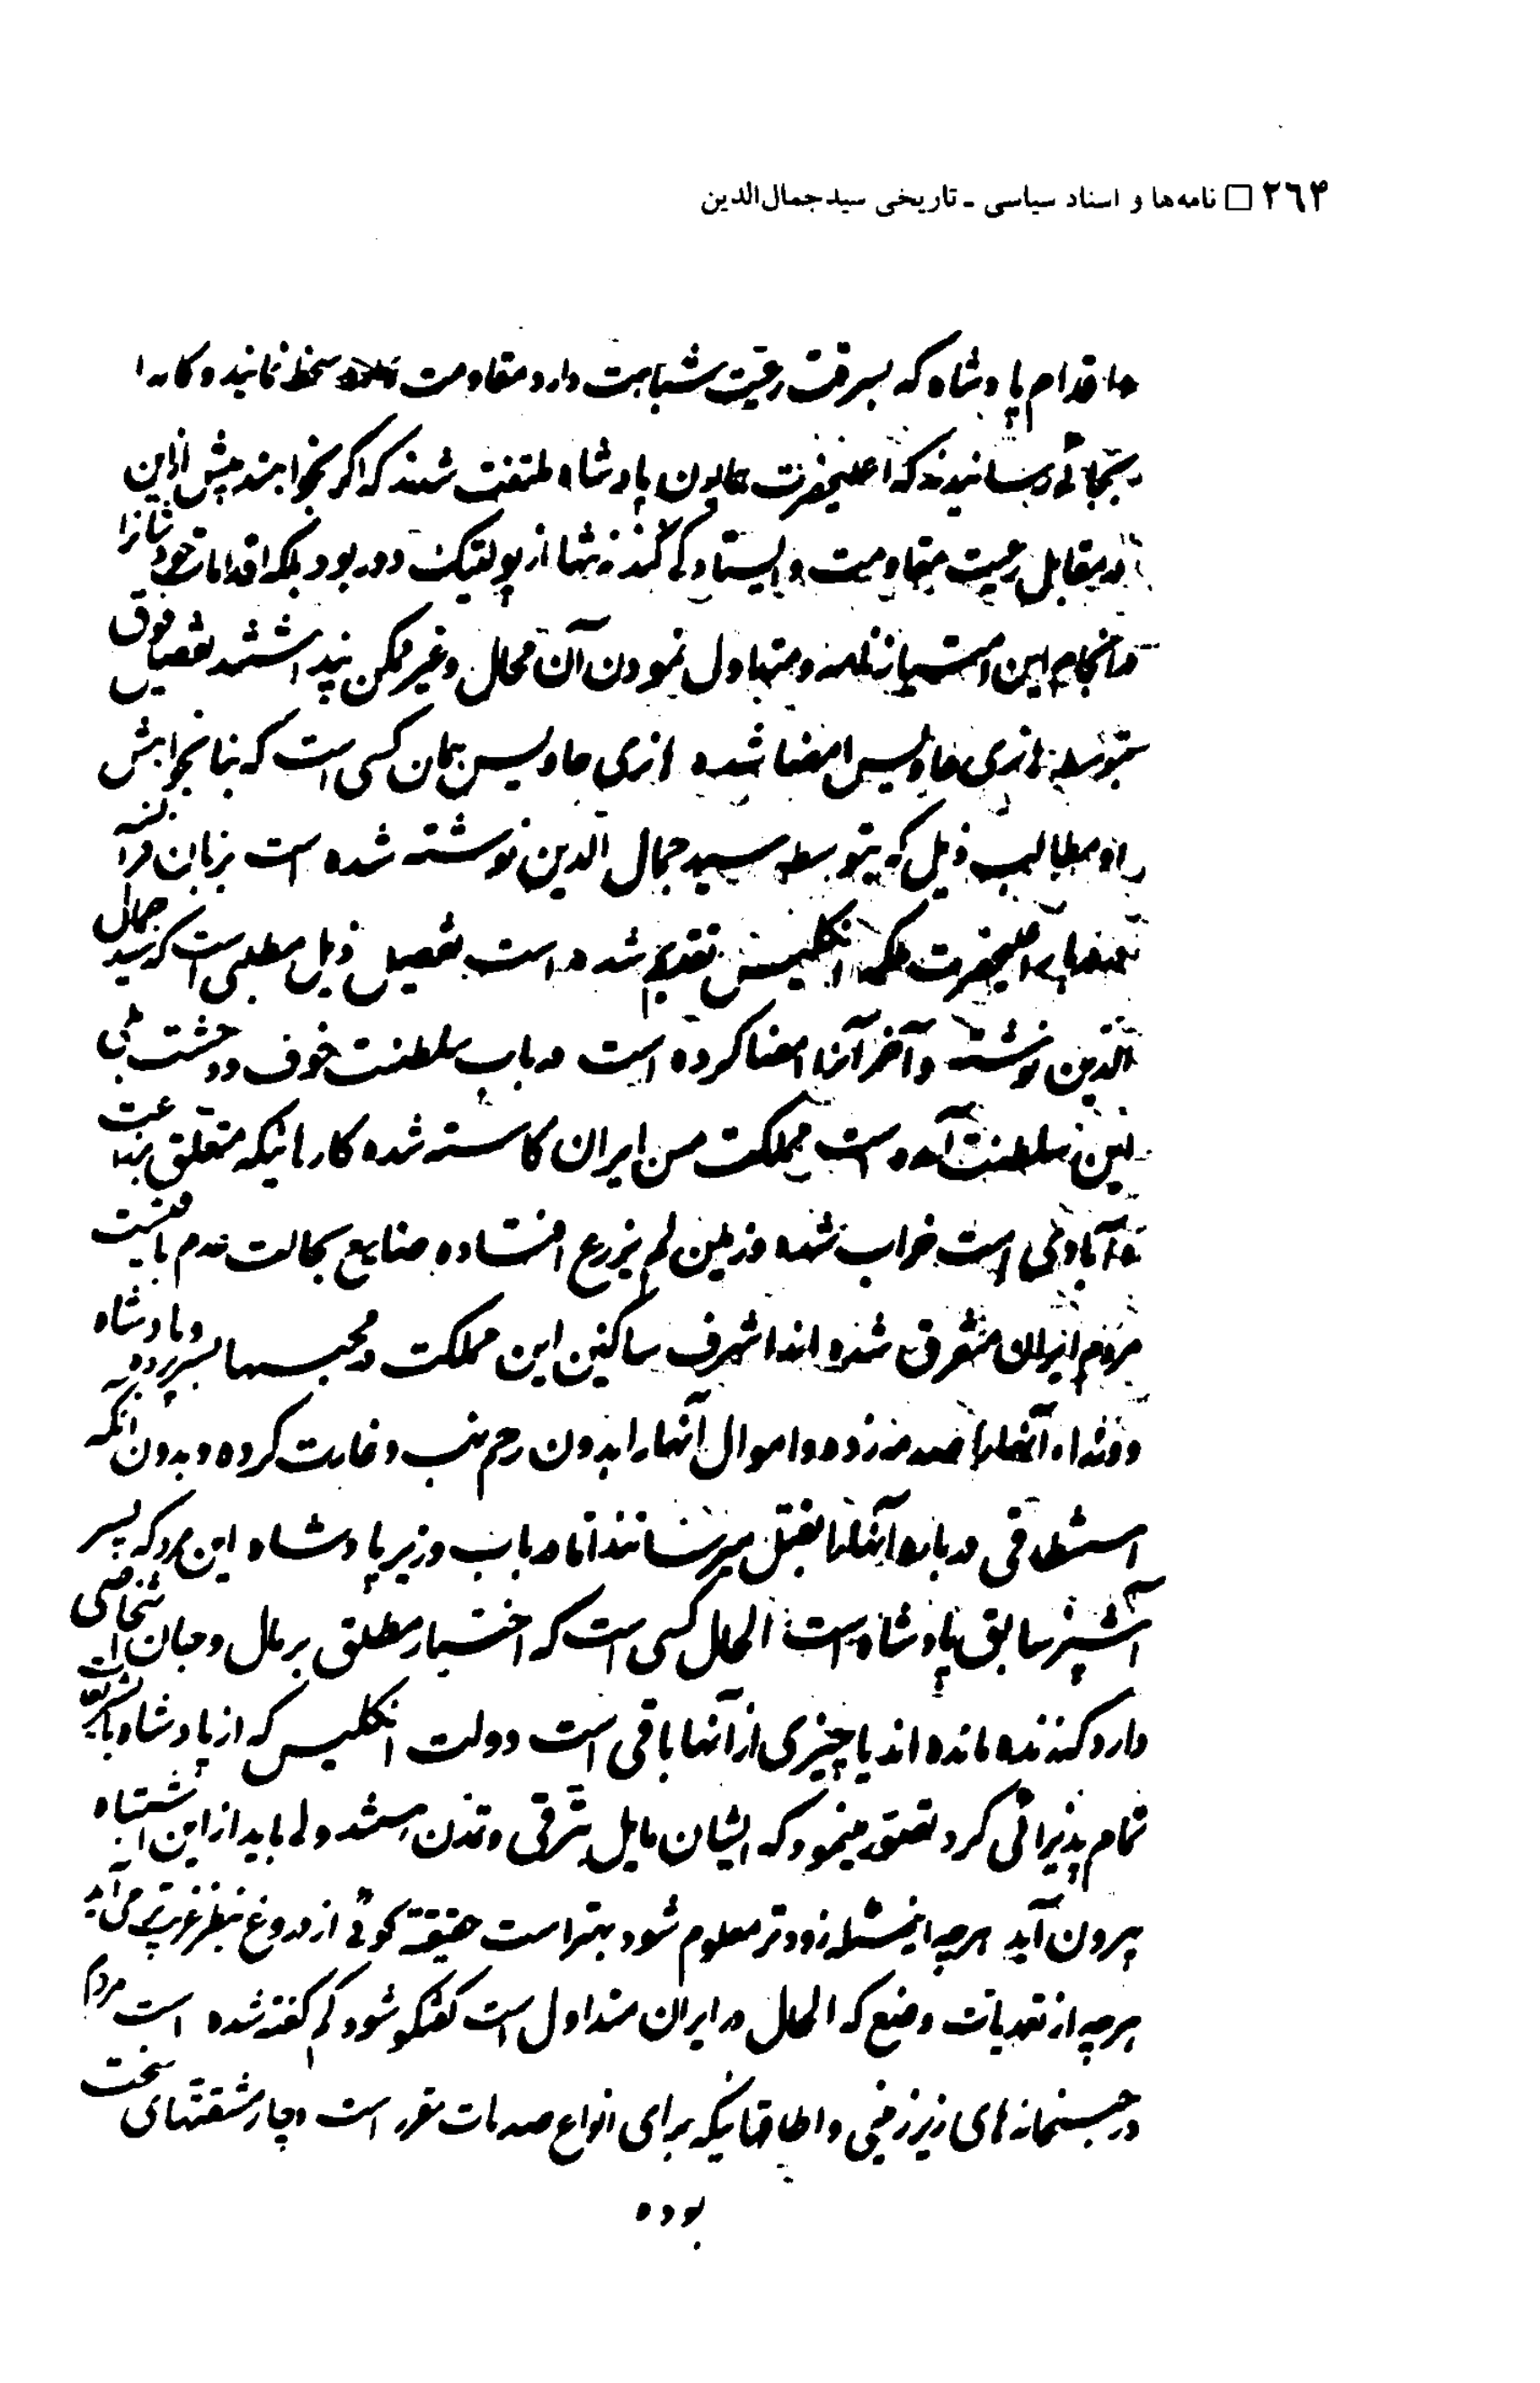 ۲٦۴ □ نامه‌ها و اسناد سیاسی - تاریخی سید جمال‌الدین
اقدام پادشاه که بسرقت رعیت شباهت دارد مقاومت سخط نمایند و کار را
بجائی رسانیدند که اعلیحضرت همایون پادشاه ملتفت شدند که اگر بخواهند پیش ازین
در مقابل رعیت مقاومت و ایستادگی کنند نه تنها از پولتیک دور بود بلکه اقدامات خودشانرا
در انجام این امتیازنامه و متداول نمودن آن محال و غیر ممکن پنداشتند تفصیل فوق
بتوسط هانری هاویس امضا شده هانری هاویس همان کسی است که بنا بخواهش
او مطالب ذیل که بتوسط سید جمال الدین نوشته شده است بزبان فرانسه
اعلیحضرت ملکه انگلیس تقدیم شده است بتفصیل ذیل مطلبی است که سید جمال
الدین نوشته و آخر آنرا امضا کرده است در باب سلطنت خوف و وحشت
این سلطنت آمده است مملکت من ایران کاسته شده کارهائیکه متعلق بزراعت
و آبادی است خراب شده و زمین لم یزرع افتاده صنایع بحالت عدم باقیست
مردم ایران متفرق شده اند اشرف ساکنین این مملکت در محبسها بسر برده و پادشاه
و وزراء آنها را صدمه زده و اموال آنها را بدون رحم نهب و غارت کرده و بدون آنکه
استنطاقی در باره آنها را بقتل میرسانند اما در باب وزیر پادشاه این مرد که پسر
آشپز سابق پادشاه است الحال کسی است که اختیار مطلق بر مال و جان اشخاصی
دارد که زنده مانده اند یا چیزی از آنها باقی است دولت انگلیس که از پادشاه با تشریفات
تمام پذیرائی کرد تصور مینمود که ایشان مایل بترقی و تمدن هستند ولی باید از این اشتباه
بیرون آید هر چه اینمسئله زودتر معلوم شود بهتر است حقیقة گوئی از دروغ بنظر غریب‌تر می‌آید
هر چه از تعدیات وضع که الحال در ایران متداول است گفتگو شود کم گفته شده است مردم
در حبسخانه‌های زیرزمینی و اطاقهائیکه برای انواع صدمات مقرر است دچار مشقتهای سخت
بوده